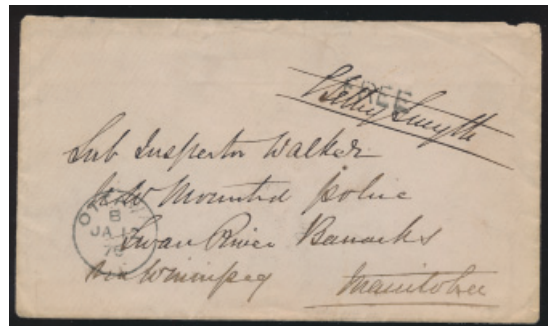 FREE
Henry Smyth
Sub Inspector Walker
N.W Mounted police
Swan River Barracks
via Winnipeg Manitoba
OTTAWA
8
JA 12